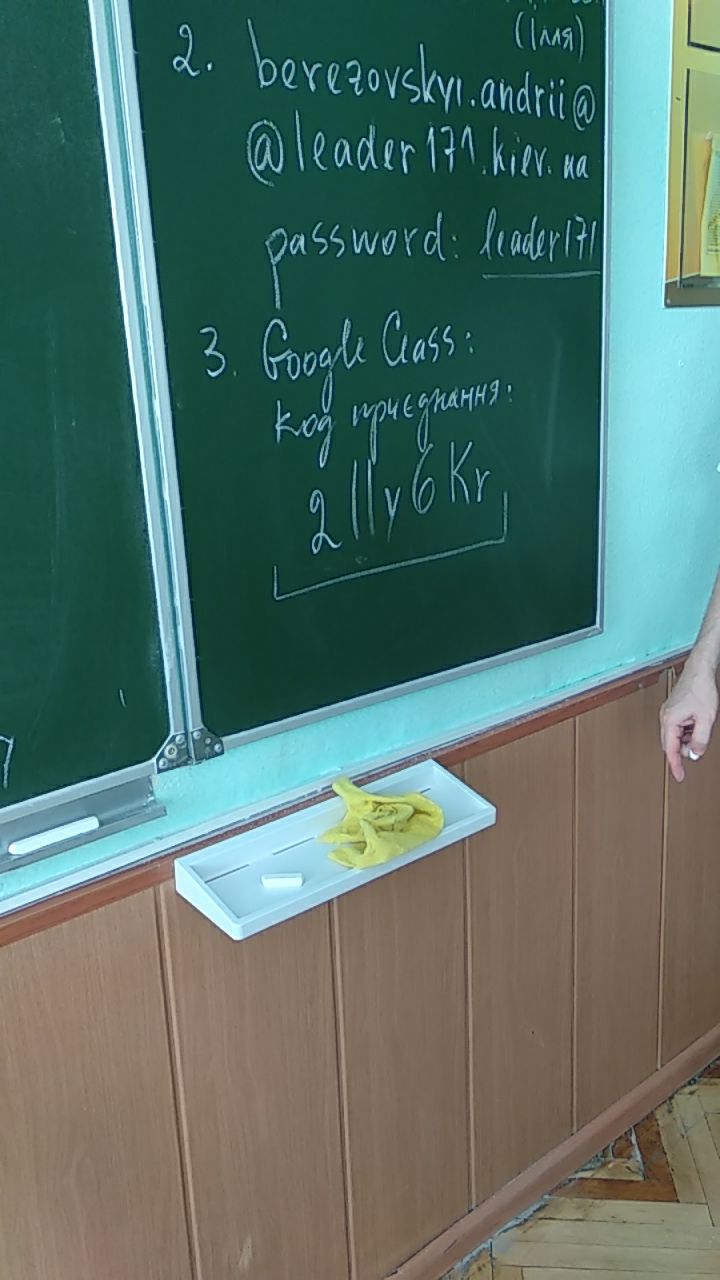 (Ілля)
2. berezovskyi.andrii@
@leader171.kiev.ua
password: leader171
3. Google Class:
код приєднання:
2lly6Kr